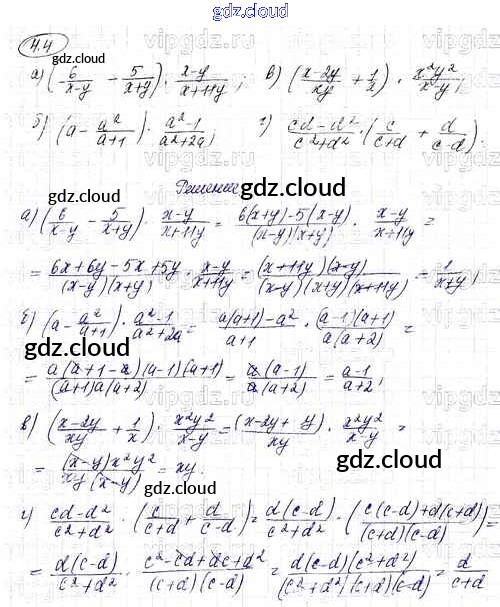 gdz.cloud
4.4
gdz.cloud
а) (6/(x-y) - 5/(x+y)) · (x-y)/(x+11y); в) (x-2y/xy + 1/x) · x²y²/(x-y);
б) (a - a²/(a+1)) · (a²-1)/(a²+2a); г) (cd-d²)/(c²+d²) · (c/(c+d) + d/(c-d)).
Решение
gdz.cloud
а) (6/(x-y) - 5/(x+y)) · (x-y)/(x+11y) = (6(x+y)-5(x-y))/((x-y)(x+y)) · (x-y)/(x+11y) =
= (6x+6y-5x+5y)/((x-y)(x+y)) · (x-y)/(x+11y) = ((x+11y)(x-y))/((x-y)(x+y)(x+11y)) = 1/(x+y);
gdz.cloud
б) (a - a²/(a+1)) · (a²-1)/(a²+2a) = (a(a+1)-a²)/(a+1) · ((a-1)(a+1))/(a(a+2)) =
gdz.cloud
= (a(a+1-a)(a-1)(a+1))/((a+1)a(a+2)) = (a(a-1))/(a(a+2)) = (a-1)/(a+2);
gdz.cloud
в) ((x-2y)/xy + 1/x) · x²y²/(x-y) = (x-2y+y)/xy · x²y²/(x-y) =
= ((x-y)x²y²)/(xy(x-y)) = xy.
gdz.cloud
г) (cd-d²)/(c²+d²) · (c/(c+d) + d/(c-d)) = d(c-d)/(c²+d²) · ((c(c-d)+d(c+d))/((c+d)(c-d))) =
= d(c-d)/(c²+d²) · (c²-cd+dc+d²)/((c+d)(c-d)) = (d(c-d)(c²+d²))/((c²+d²)(c+d)(c-d)) = d/(c+d)
gdz.cloud